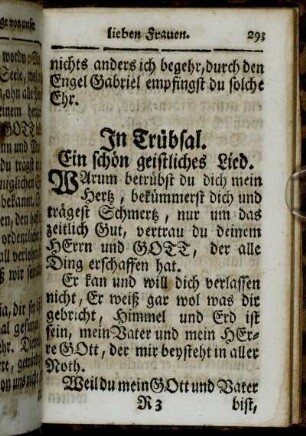 lieben Frauen. 293
nichts anders ich begehr, durch den
Engel Gabriel empfingst du solche
Ehr.
In Trübsal.
Ein schön geistliches Lied.
WArum betrübst du dich mein
Hertz, bekümmerst dich und
trägest Schmertz, nur um das
zeitlich Gut, vertrau du deinem
HErrn und GOTT, der alle
Ding erschaffen hat.
Er kan und will dich verlassen
nicht, Er weiß gar wol was dir
gebricht, Himmel und Erd ist
sein, mein Vater und mein HEr-
re GOtt, der mir beysteht in aller
Noth.
Weil du mein GOtt und Vater
R 3 bist,